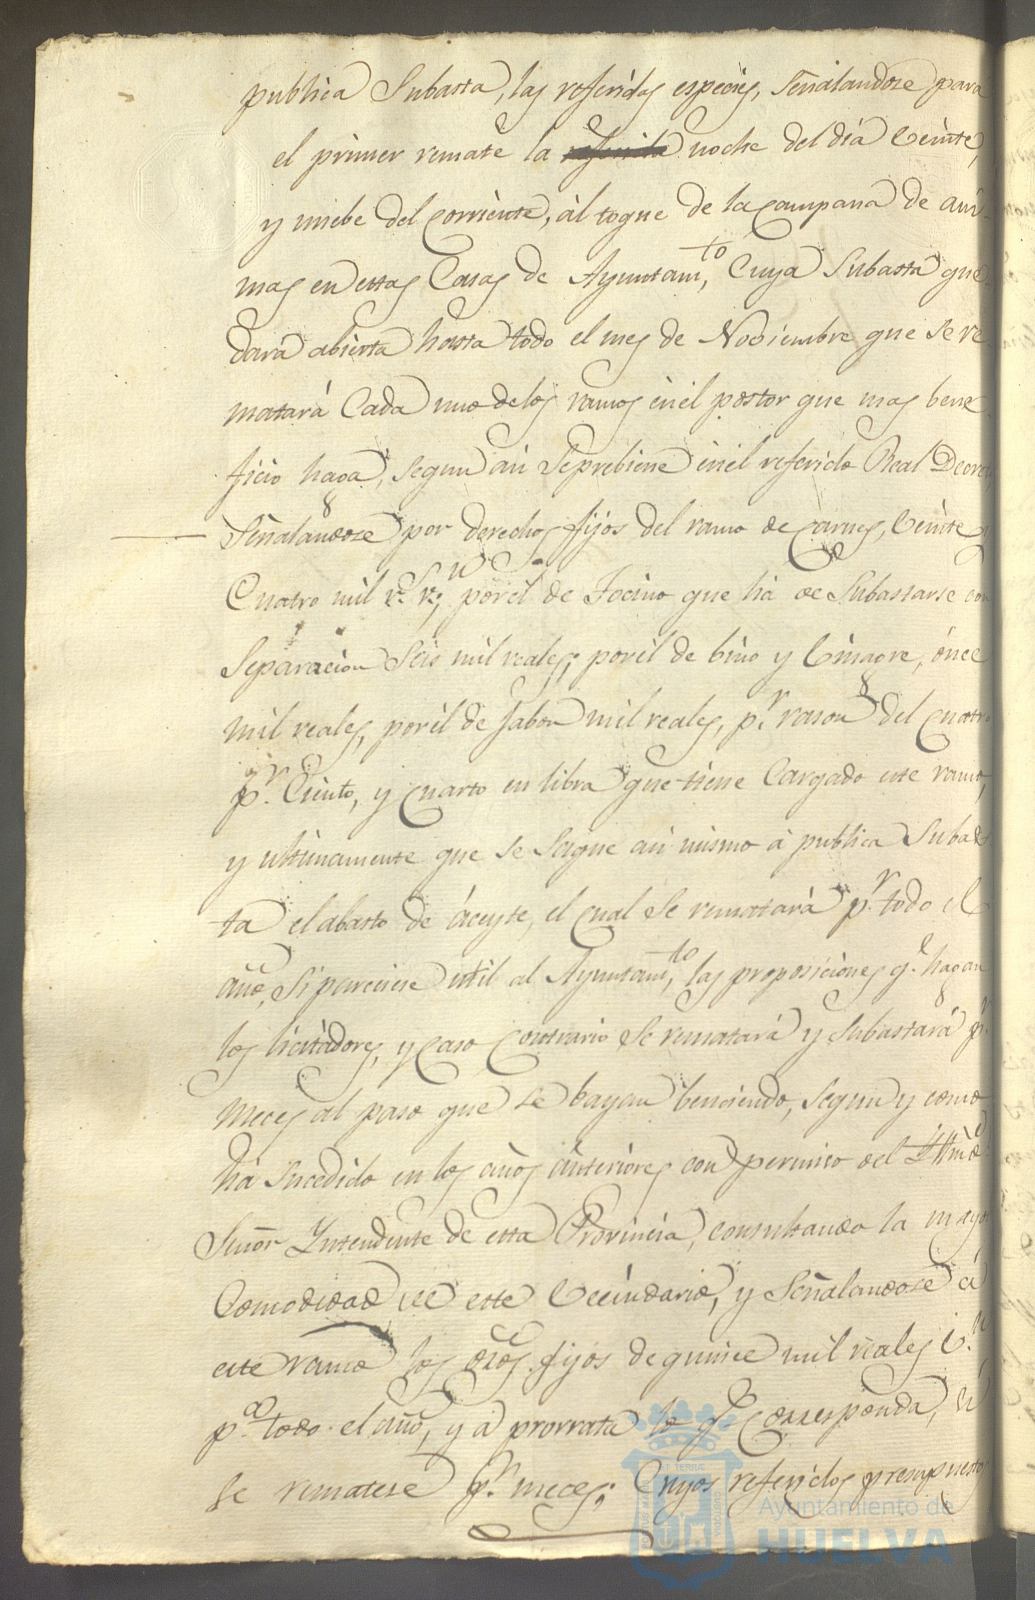 publica Subasta, las referidas especies, Señalandose para
el primer remate la referida noche del dia Veinte,
y niebe del Corriente, àl toque de la campana de ani-
mas en estas Casas de Ayuntam.to, Cuya Subasta que
dara abierta hasta todo el mes de Nobiembre que se re
matará Cada uno de los ramos en el postor que mas bene
ficio haga, segun asi se prebiene en el referido Real Decre
Señalandose por derechos fijos del ramo de Carnes, Veinte y
Cuatro mil r.s v.n; por el de Tocino que ha de Subastarse con
Separacion Seis mil reales; por el de bino y Vinagre, ónce
mil reales, por el de Jabon mil reales, p.r rason del Cuatro
p.r Ciento, y Cuarto en libra que tiene Cargado este ramo,
y ultimamente que se saque asi mismo à publica Subas
ta el abasto de áceyte, el cual se rematará p.r todo el
año, Si pareciese util al Ayuntam.to, las proposiciones q.e hagan
los licitadores, y Caso Contrario se rematará y Subastará p.r
meces al paso que se bayan benciendo, segun y como
há Sucedido en los años ànteriores con permiso del Illmo
Señor Yntendente de esta Provincia, consultando la mayor
Comodidad de este Vecindario, y Señalandose á
este ramo los dros. fijos de quince mil reales v.n,
p.a todo el año, y a prorrata lo q.e Corresponda, si
se rematase p.r meces; Cuyos referidos presupuestos
Ayuntamiento de
HUELVA